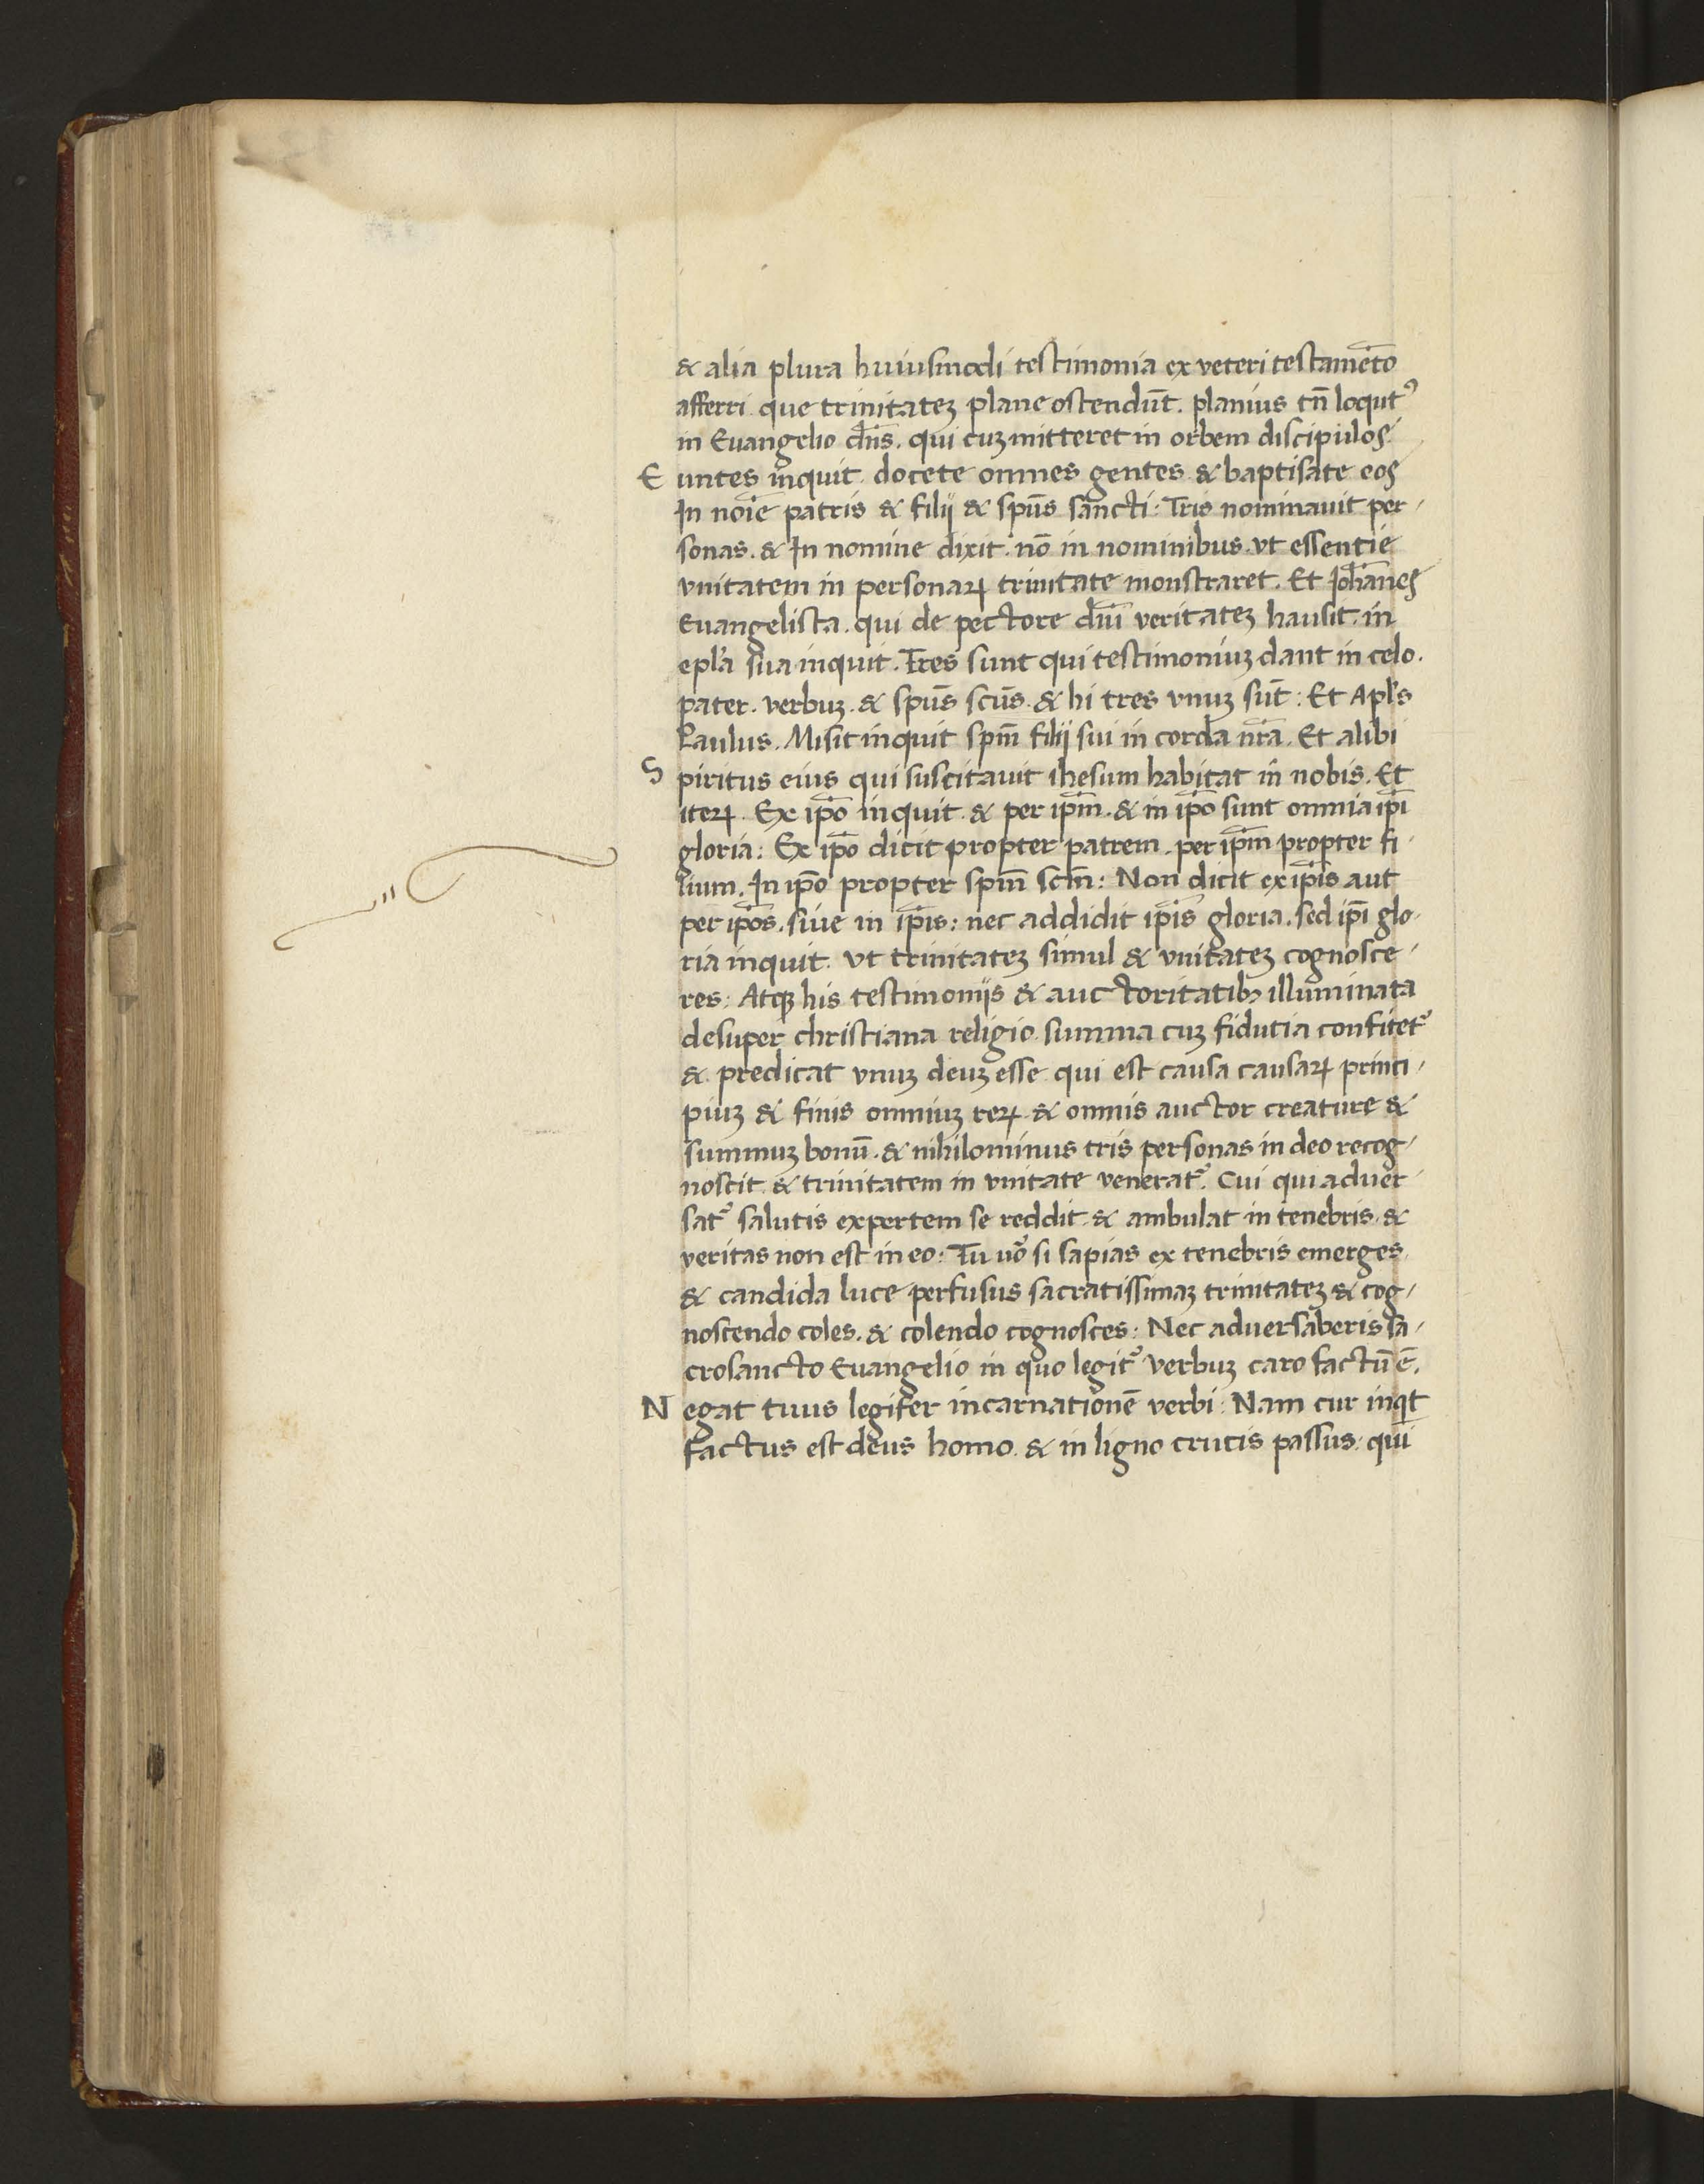 & alia plura huiusmodi testimonia ex veteri testamēto
afferri que trinitateȝ plane ostendūt. planius tn̄ loqutꝰ
in Euangelio dn̄s. qui cuȝ mitteret in orbem discipulos.
Euntes inquit docete omnes gentes & baptisate eos
In noīe patris & filij & spūs sancti: Tris nominauit per-
sonas. & In nomine dixit. nō in nominibus. vt essentie
vnitatem in personaꝝ trinitate monstraret. Et Johānes
Euangelista. qui de pectore dn̄i veritateȝ hausit. in
epl'a sua inquit. Tres sunt qui testimoniuȝ dant in celo.
pater. verbuȝ. & spūs scūs. & hi tres vnuȝ sūt: Et Apl's
Paulus. Misit inquit spm̄ filij sui in corda nr̄a. Et alibi
Spiritus eius qui suscitauit ihesum habitat in nobis. Et
iteꝝ. Ex ip̄o inquit & per ip̄m. & in ip̄o sunt omnia ip̄i
gloria: Ex ip̄o dicit propter patrem. per ip̄m propter fi-
lium. In ip̄o propter spm̄ scm̄: Non dicit ex ip̄is aut
per ip̄os. siue in ip̄is: nec addidit ip̄is gloria. sed ip̄i glo-
ria inquit. vt trinitateȝ simul & vnitateȝ cognosce-
res: Atqꝫ his testimoniis & auctoritatibꝫ illuminata
desuper christiana religio summa cuȝ fidutia confitet᷑
& predicat vnuȝ deuȝ esse qui est causa causaꝝ princi-
piuȝ & finis omniuȝ reꝝ & omnis auctor creature &
summuȝ bonū. & nihilominus tris personas in deo recog-
noscit & trinitatem in vnitate venerat᷑. Cui qui aduer-
sat᷑ salutis expertem se reddit & ambulat in tenebris &
veritas non est in eo: Tu uō si sapias ex tenebris emerges
& candida luce perfusus sacratissimaȝ trinitateȝ & cog-
noscendo coles. & colendo cognosces: Nec aduersaberis sa-
crosancto Euangelio in quo legit᷑ verbuȝ caro factū ē.
Negat tuus legifer incarnationē verbi: Nam cur inqͥt
factus est deus homo. & in ligno crucis passus: qui